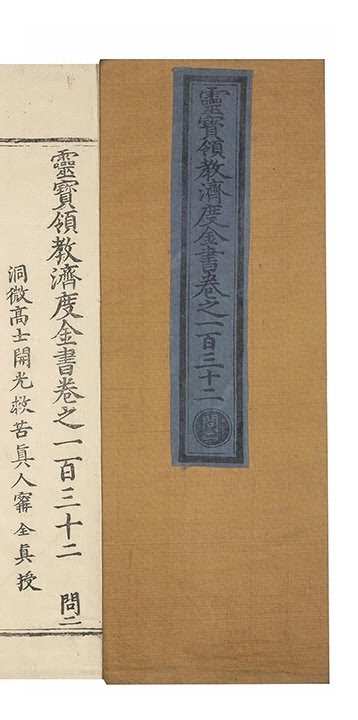 靈寶領教濟度金書卷之一百三十二
問二
靈寶領教濟度金書卷之一百三十二 問二
洞微高士開光救苦真人寗全真授